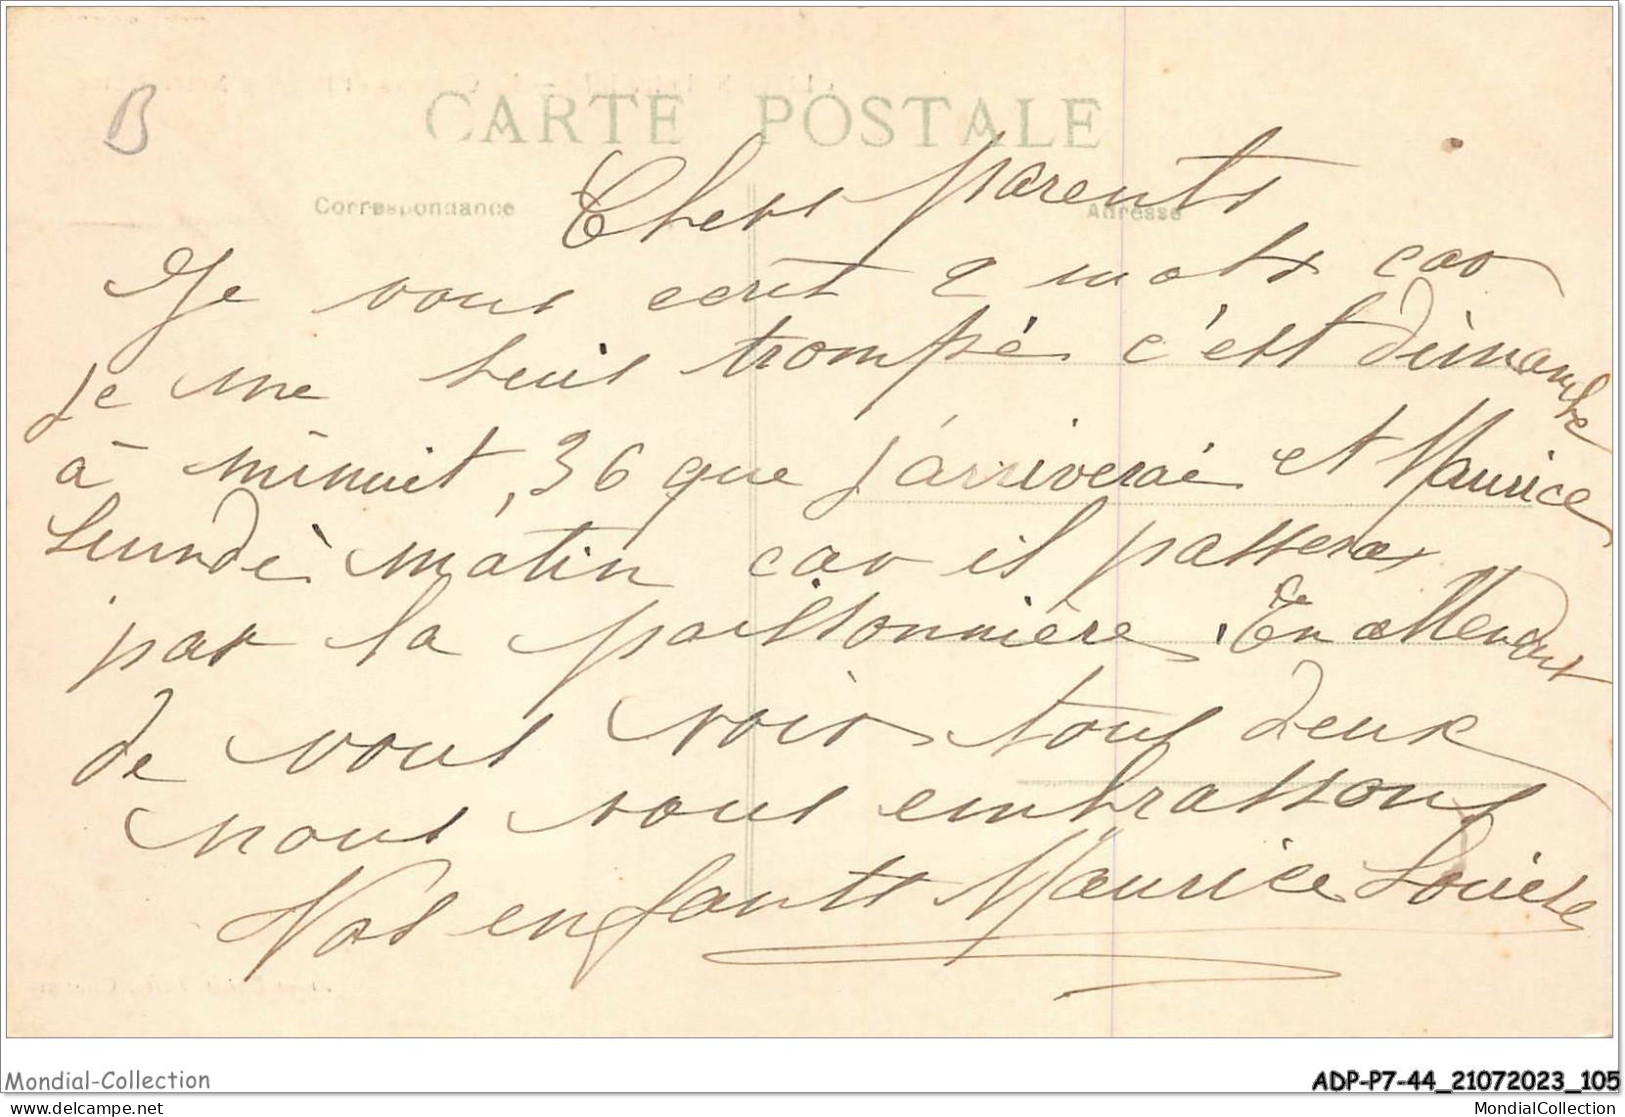 B
CARTE POSTALE
Correspondance
Adresse
Chers parents
Je vous ecrit 2 mots car
je me suis trompé c'est dimanche
à minuit, 36 que j'arriverai et Maurice
Lundi matin car il passera
par la poissonnière. En attendant
de vous voir tous deux
nous vous embrassons
Vos enfants Maurice Louise
Mondial-Collection
ADP-P7-44_21072023_105
delcampe.net
MondialCollection